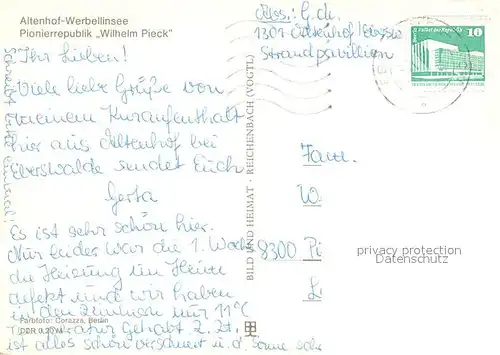 Altenhof-Werbellinsee
Pionierrepublik „Wilhelm Pieck"
Abs.: G. d.
1301 Altenhof / Ebersw
Strandpavillion
10
Ihr Lieben!
Viele liebe Grüße von
meinem Kuraufenthalt
hier aus Altenhof bei
Eberswalde sendet Euch
Gerta
Es ist sehr schön hier.
Nur leider war die 1. Woche
die Heizung im Heim
defekt und wir haben
in den Zimmern nur 11°C
Temperatur gehabt. Z. Zt.
ist alles schön verschneit u. d. Sonne
Schreibt bitte einmal!
BILD UND HEIMAT · REICHENBACH (VOGTL)
Fam.
W
8300 Pi
L
privacy protection
Datenschutz
Farbfoto: Corazza, Berlin
DDR 0,20 M